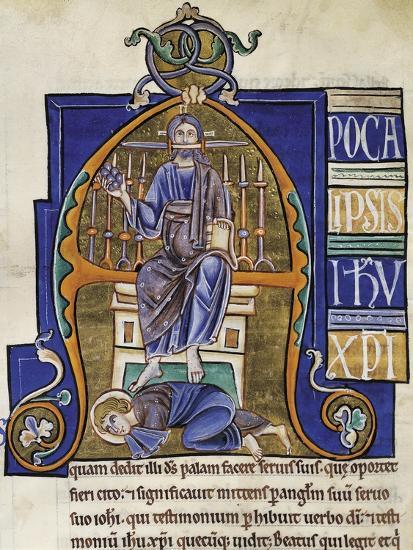 A
POCA
LIPSIS
IHV
XPI
quam dedit illi d̄s palam facere seruis suis. que oportet
fieri cito: ⁊ significauit mittens p̲ angl̄m suū seruo
suo ioh̄i. qui testimonium p̲hibuit uerbo dī: ⁊ testi
moniū ih̄u xp̄i quecūq; uidit; Beatus qui legit et q